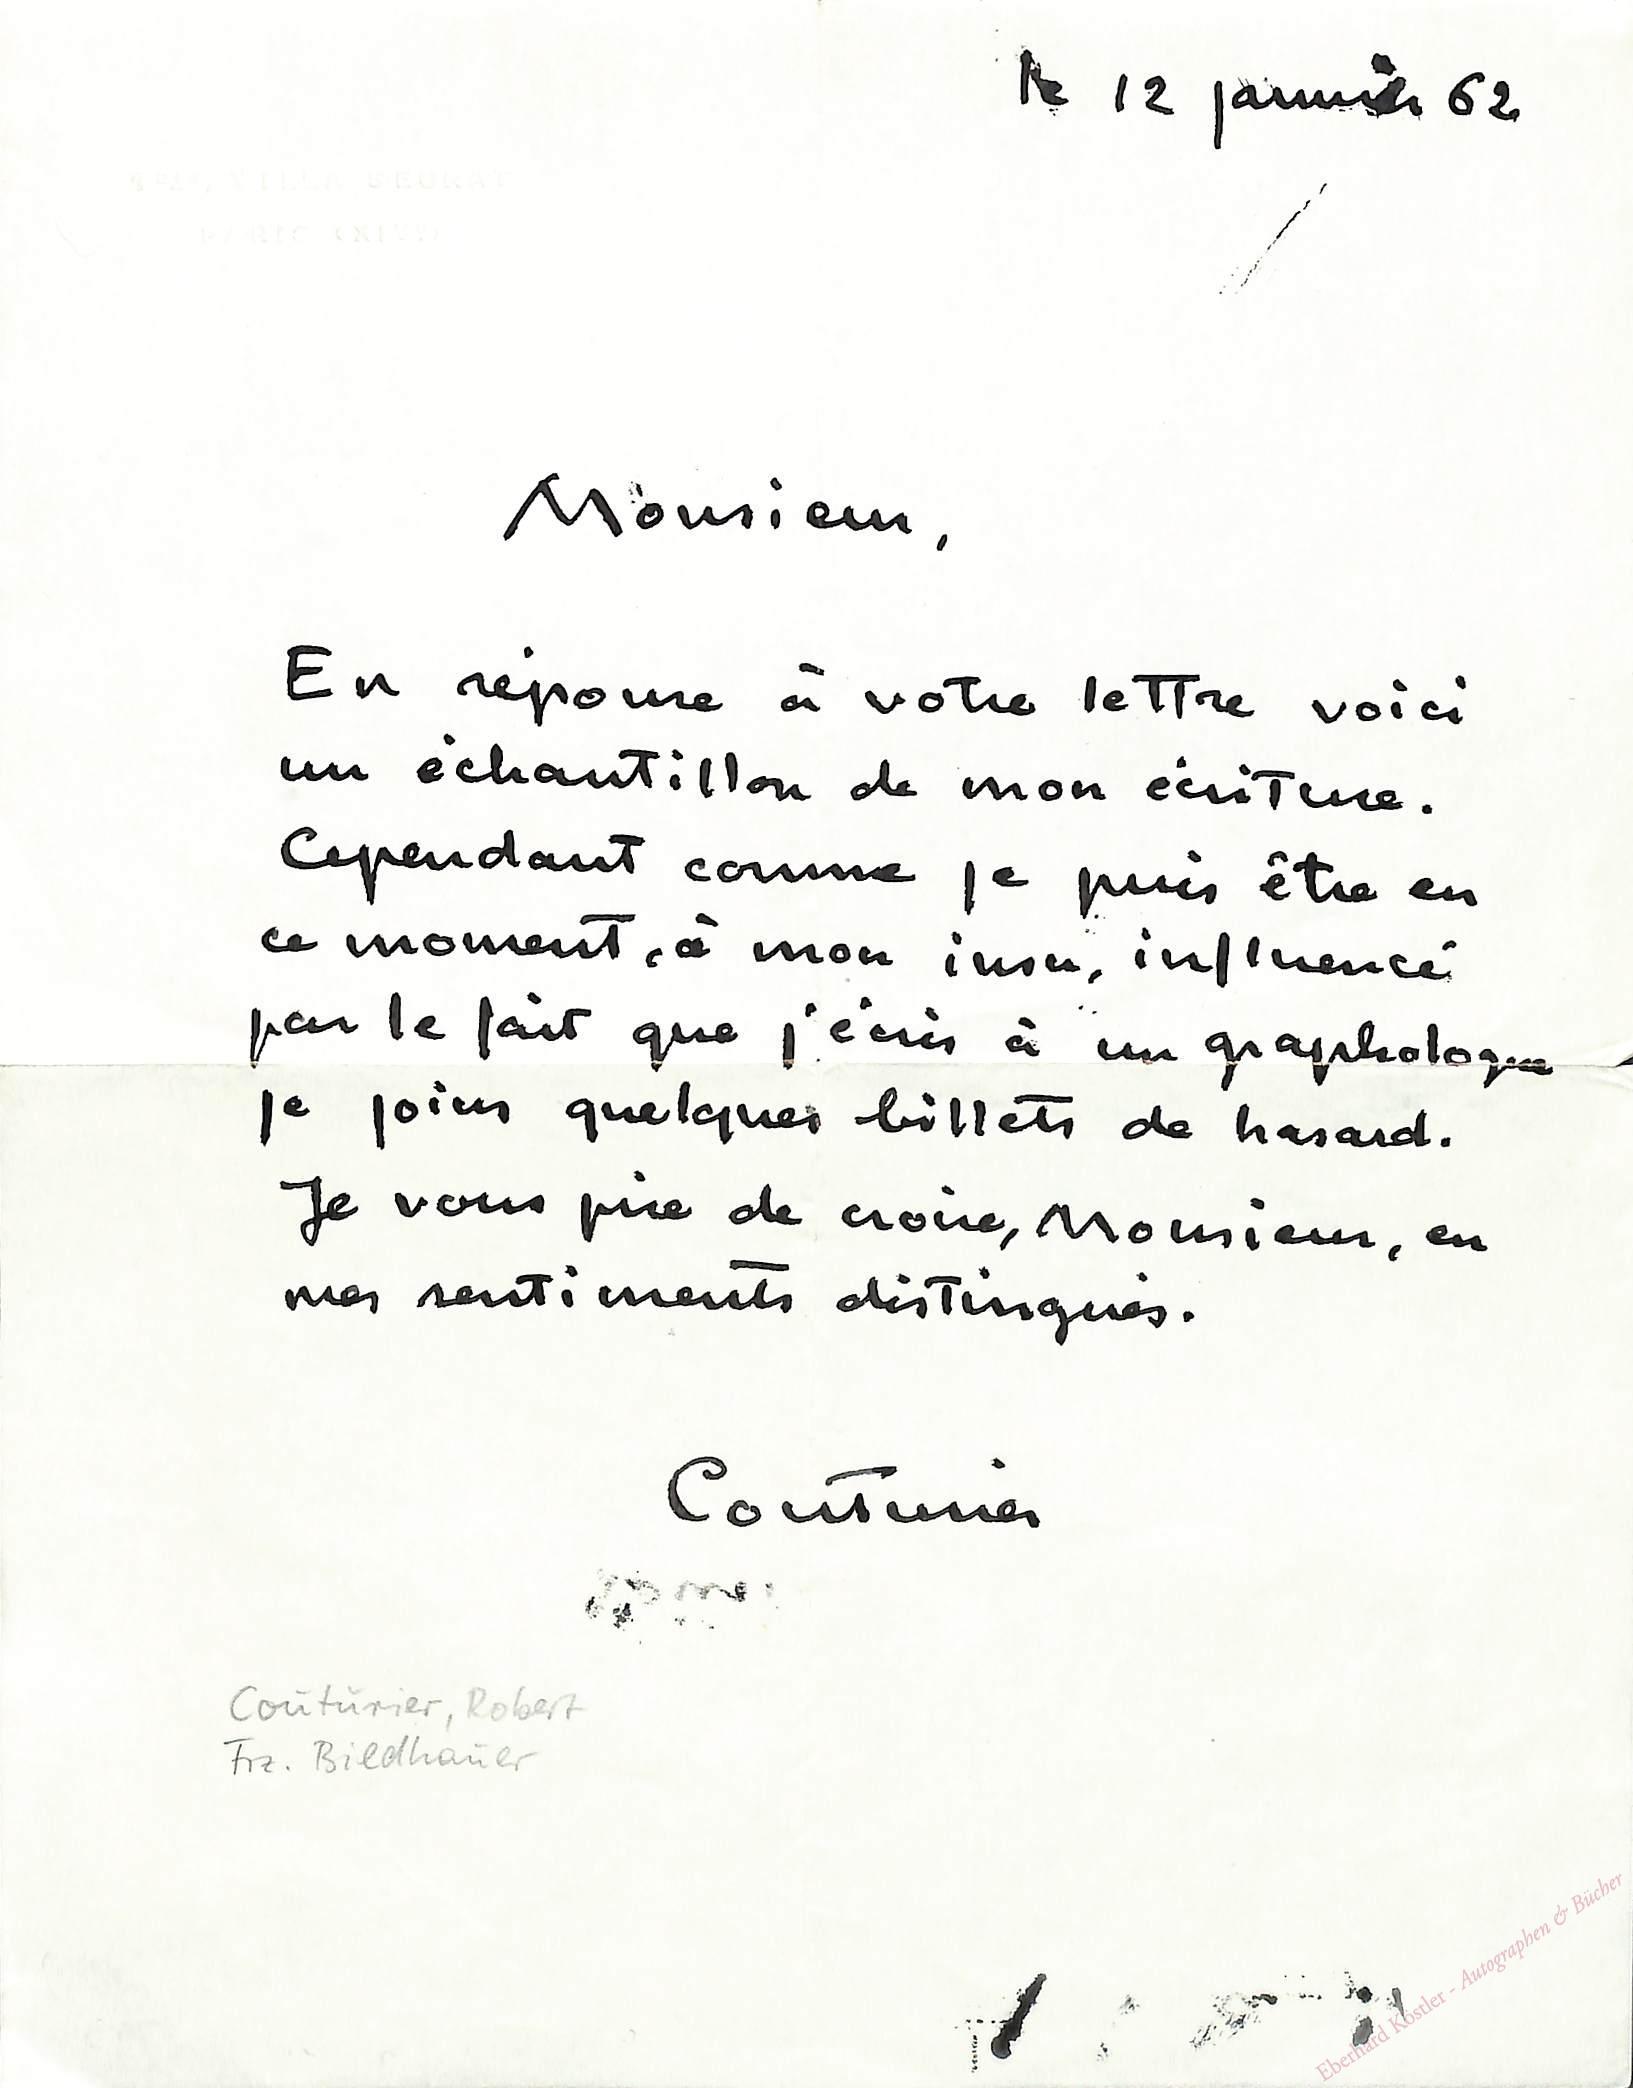 le 12 janvier 62
VILLA SEURAT
PARIS (XIVe)
Monsieur,
En réponse à votre lettre voici
un échantillon de mon écriture.
Cependant comme je puis être en
ce moment, à mon insu, influencé
par le fait que j'écris à un graphologue
je joins quelques billets de hasard.
Je vous prie de croire, Monsieur, en
mes sentiments distingués.
Couturier
Couturier, Robert
Frz. Bildhauer
Eberhard Köstler - Autographen & Bücher